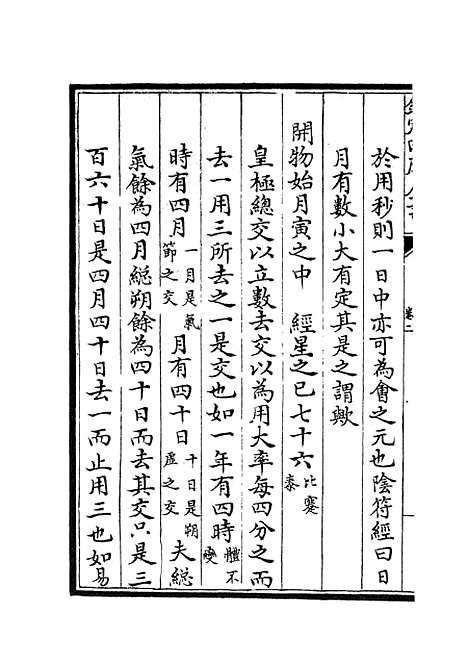 於用秒則一日中亦可為會之元也陰符經曰日
月有數小大有定其是之謂歟
開物始月寅之中 經星之已七十六比蹇泰
皇極總交以立數去交以為用大率每四分之而
去一用三所去之一是交也如一年有四時體不變
時有四月一月是氣節之交月有四十日十日是朔虛之交夫總
氣餘為四月總朔餘為四十日而去其交只是三
百六十日是四月四十日去一而止用三也如易
卷二